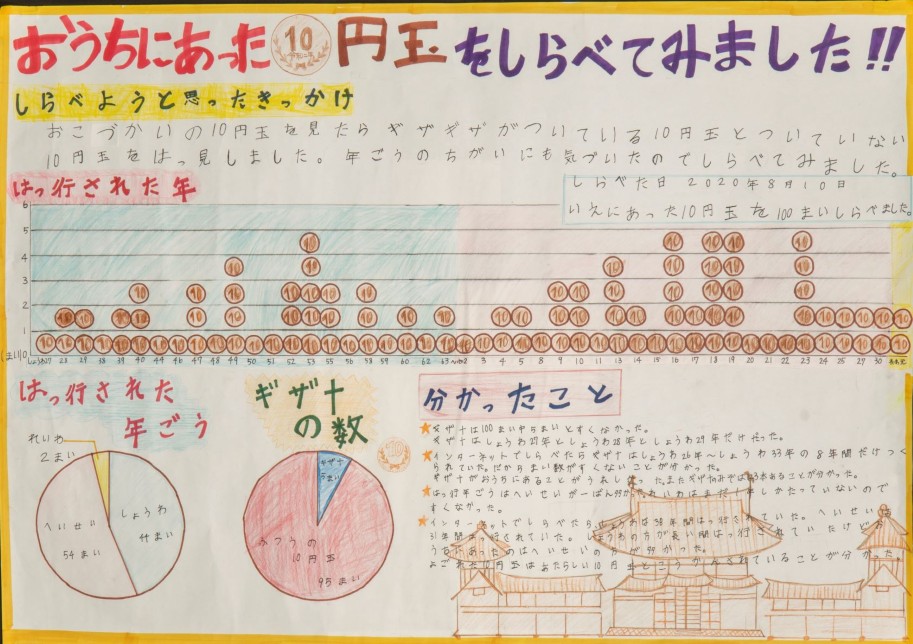 おうちにあった 10 円玉 をしらべてみました!!
しらべようと思ったきっかけ
おこづかいの10円玉を見たらギザギザがついている10円玉とついていない
10円玉をはっ見しました。年ごうのちがいにも気づいたのでしらべてみました。
はっ行された年
しらべた日 2020年8月10日
いえにあった10円玉を100まいしらべました。
6
5
4
3
2
1
(まい)0
しょう27 28 29 38 39 40 44 46 47 48 49 50 51 52 53 55 56 58 59 60 62 63 2 3 4 5 8 9 10 11 12 13 14 15 16 17 18 19 20 21 22 23 24 25 28 29 30
はっ行された
年ごう
れいわ
2まい
へいせい
54まい
しょうわ
44まい
ギザ十
の数
ギザ十
5まい
ふつうの
10円玉
95まい
分かったこと
ギザ十は100まい中5まいとすくなかった。
ギザ十はしょうわ27年としょうわ28年としょうわ29年だけだった。
インターネットでしらべたらギザ十はしょうわ26年〜しょうわ33年の8年間だけつく
られていた。だからまい数がすくないことが分かった。
ギザ十がおうちにあることがうれしかった。またギザ
はっ行年ごうはへいせいが一ばん多かった。れいわはまだ しかたっていないので
すくなかった。
インターネットでしらべたらしょうわは38年間はっ行されていた。へいせいは
31年間はっ行されていた。しょうわの方が長い間はっ行されていたけど
うちにあったのはへいせいの方が多かった。
よごれた10円玉はあたらしい10円玉とこうかんされていることが分かった。